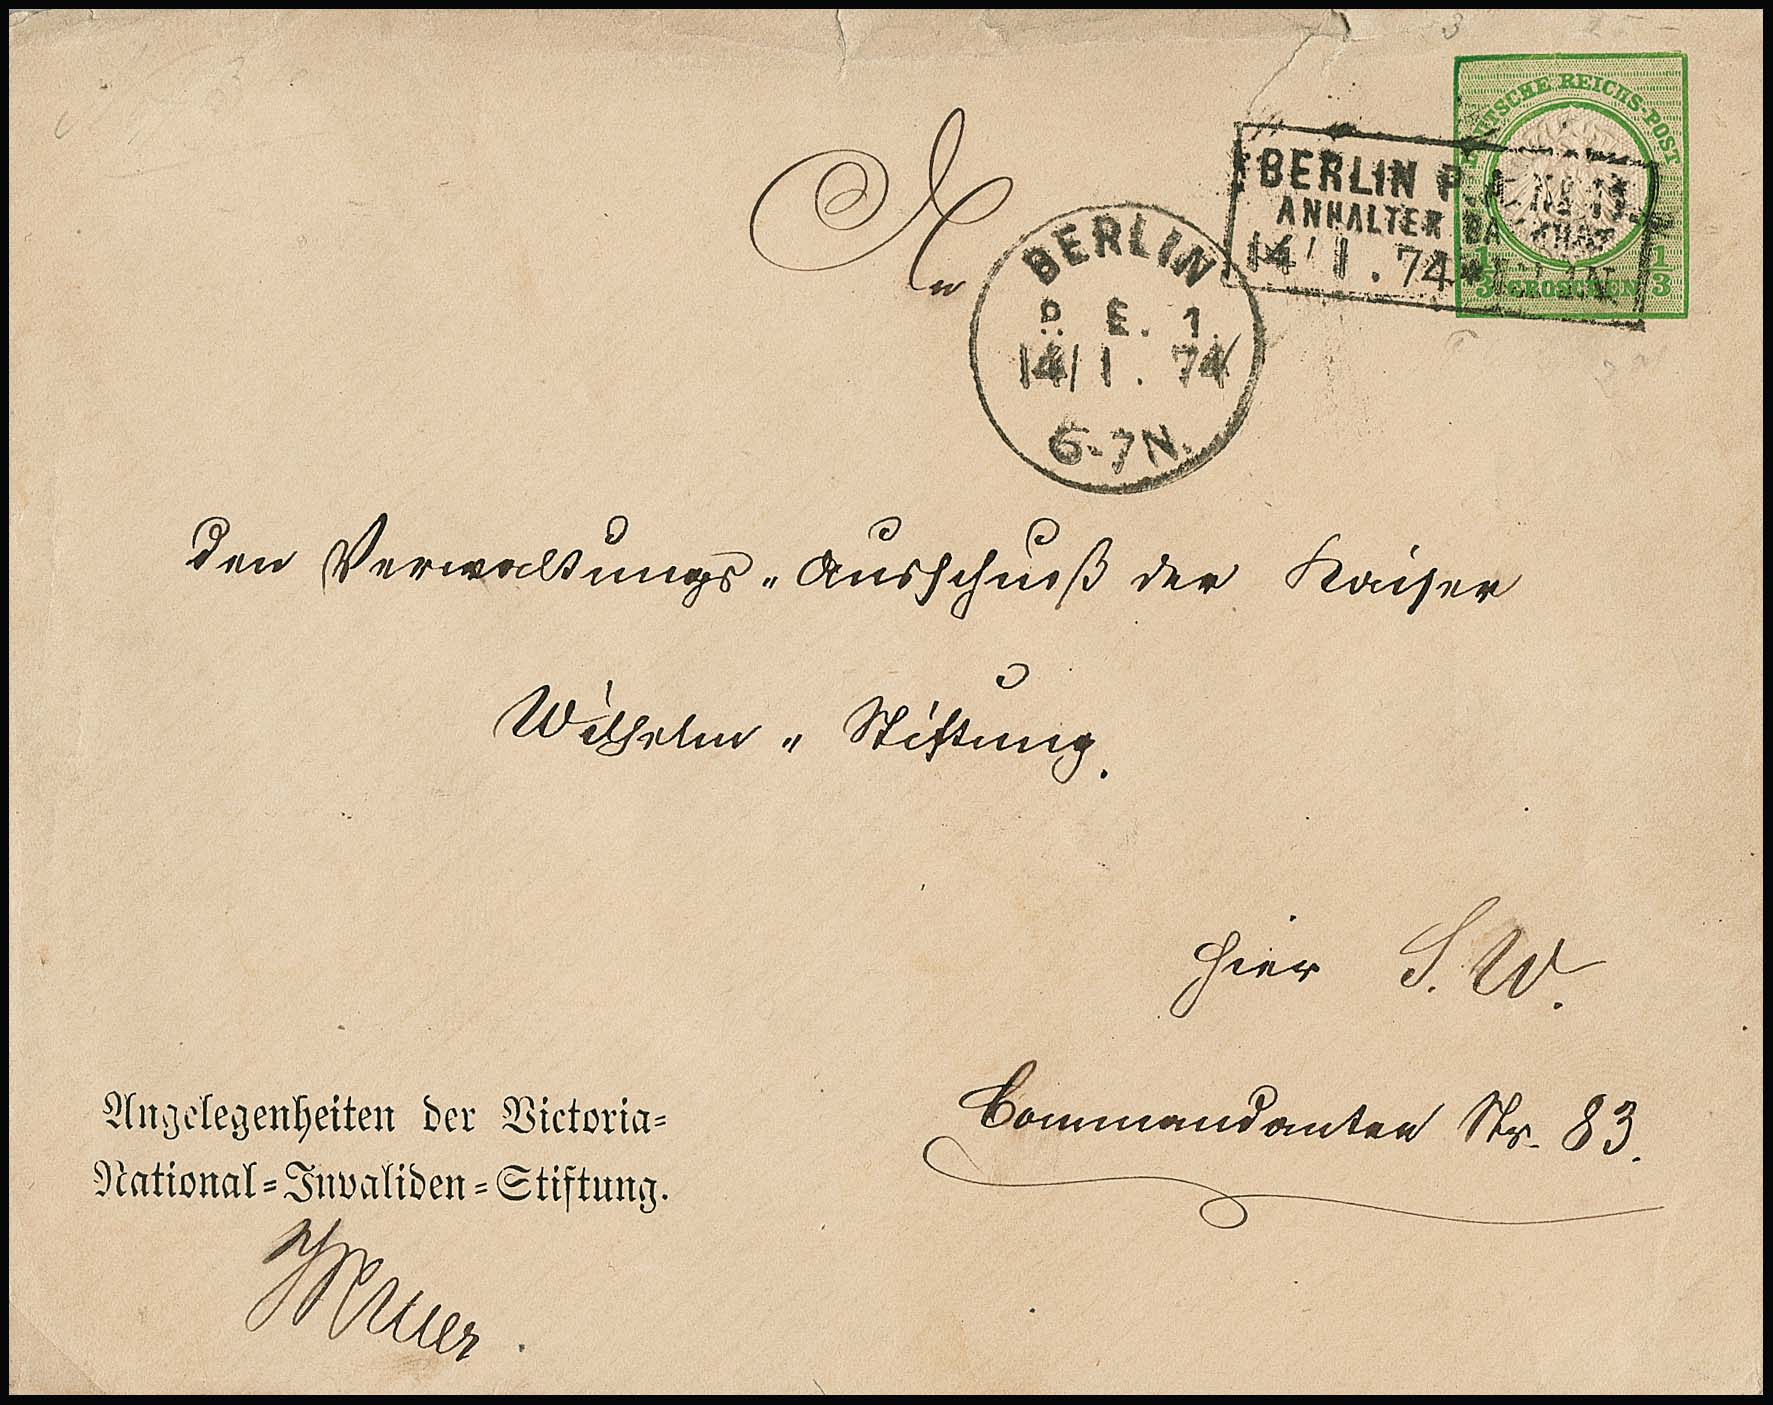 DEUTSCHE REICHS-POST
1/3 GROSCHEN 1/3
BERLIN P.
ANHALTER BAHNHOF
14/1.74
BERLIN
P. E. 1.
14/1.74
6-7N.
An
den Verwaltungs-Ausschuß der Kaiser
Wilhelm-Stiftung.
hier S.W.
Commandanten Str. 83.
Angelegenheiten der Victoria-
National-Invaliden-Stiftung.